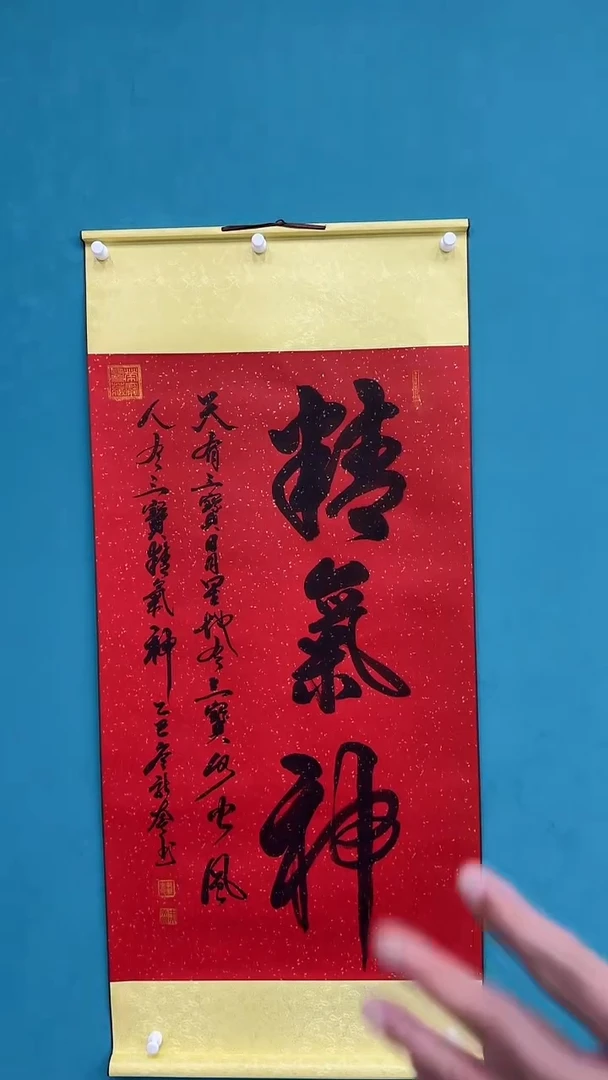 精氣神
天有三寶日月星地有三寶水火風
人有三寶精氣神 乙巳